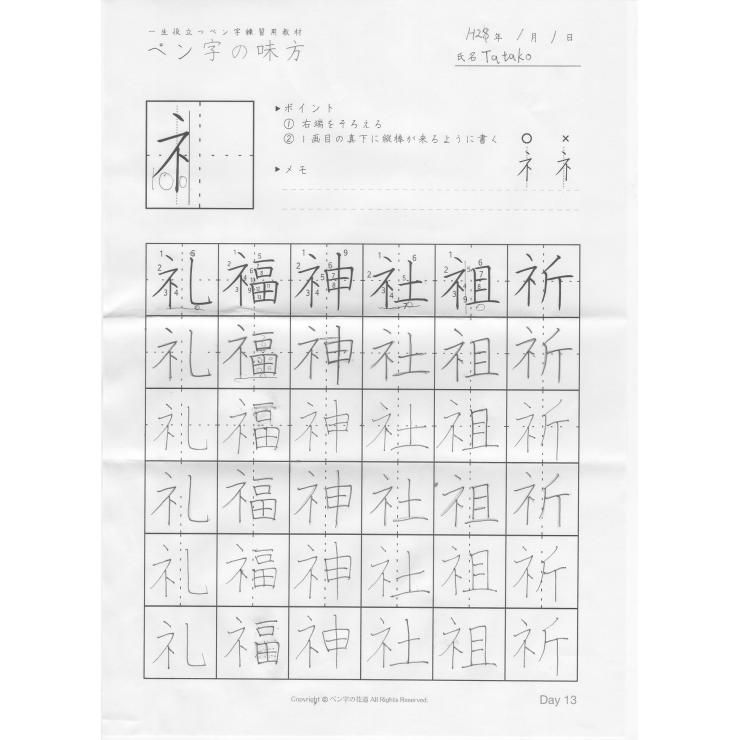 一生役立つペン字練習用教材
ペン字の味方
H28年 1月 1日
氏名 Tatako
▶ポイント
① 右端をそろえる
② 1画目の真下に縦棒が来るように書く
○ ×
ネ ネ ネ
▶メモ
礼 福 神 社 祖 祈
礼 福 神 社 祖 祈
礼 福 神 社 祖 祈
礼 福 神 社 祖 祈
礼 福 神 社 祖 祈
礼 福 神 社 祖 祈
Copyright © ペン字の花道 All Rights Reserved.
Day 13